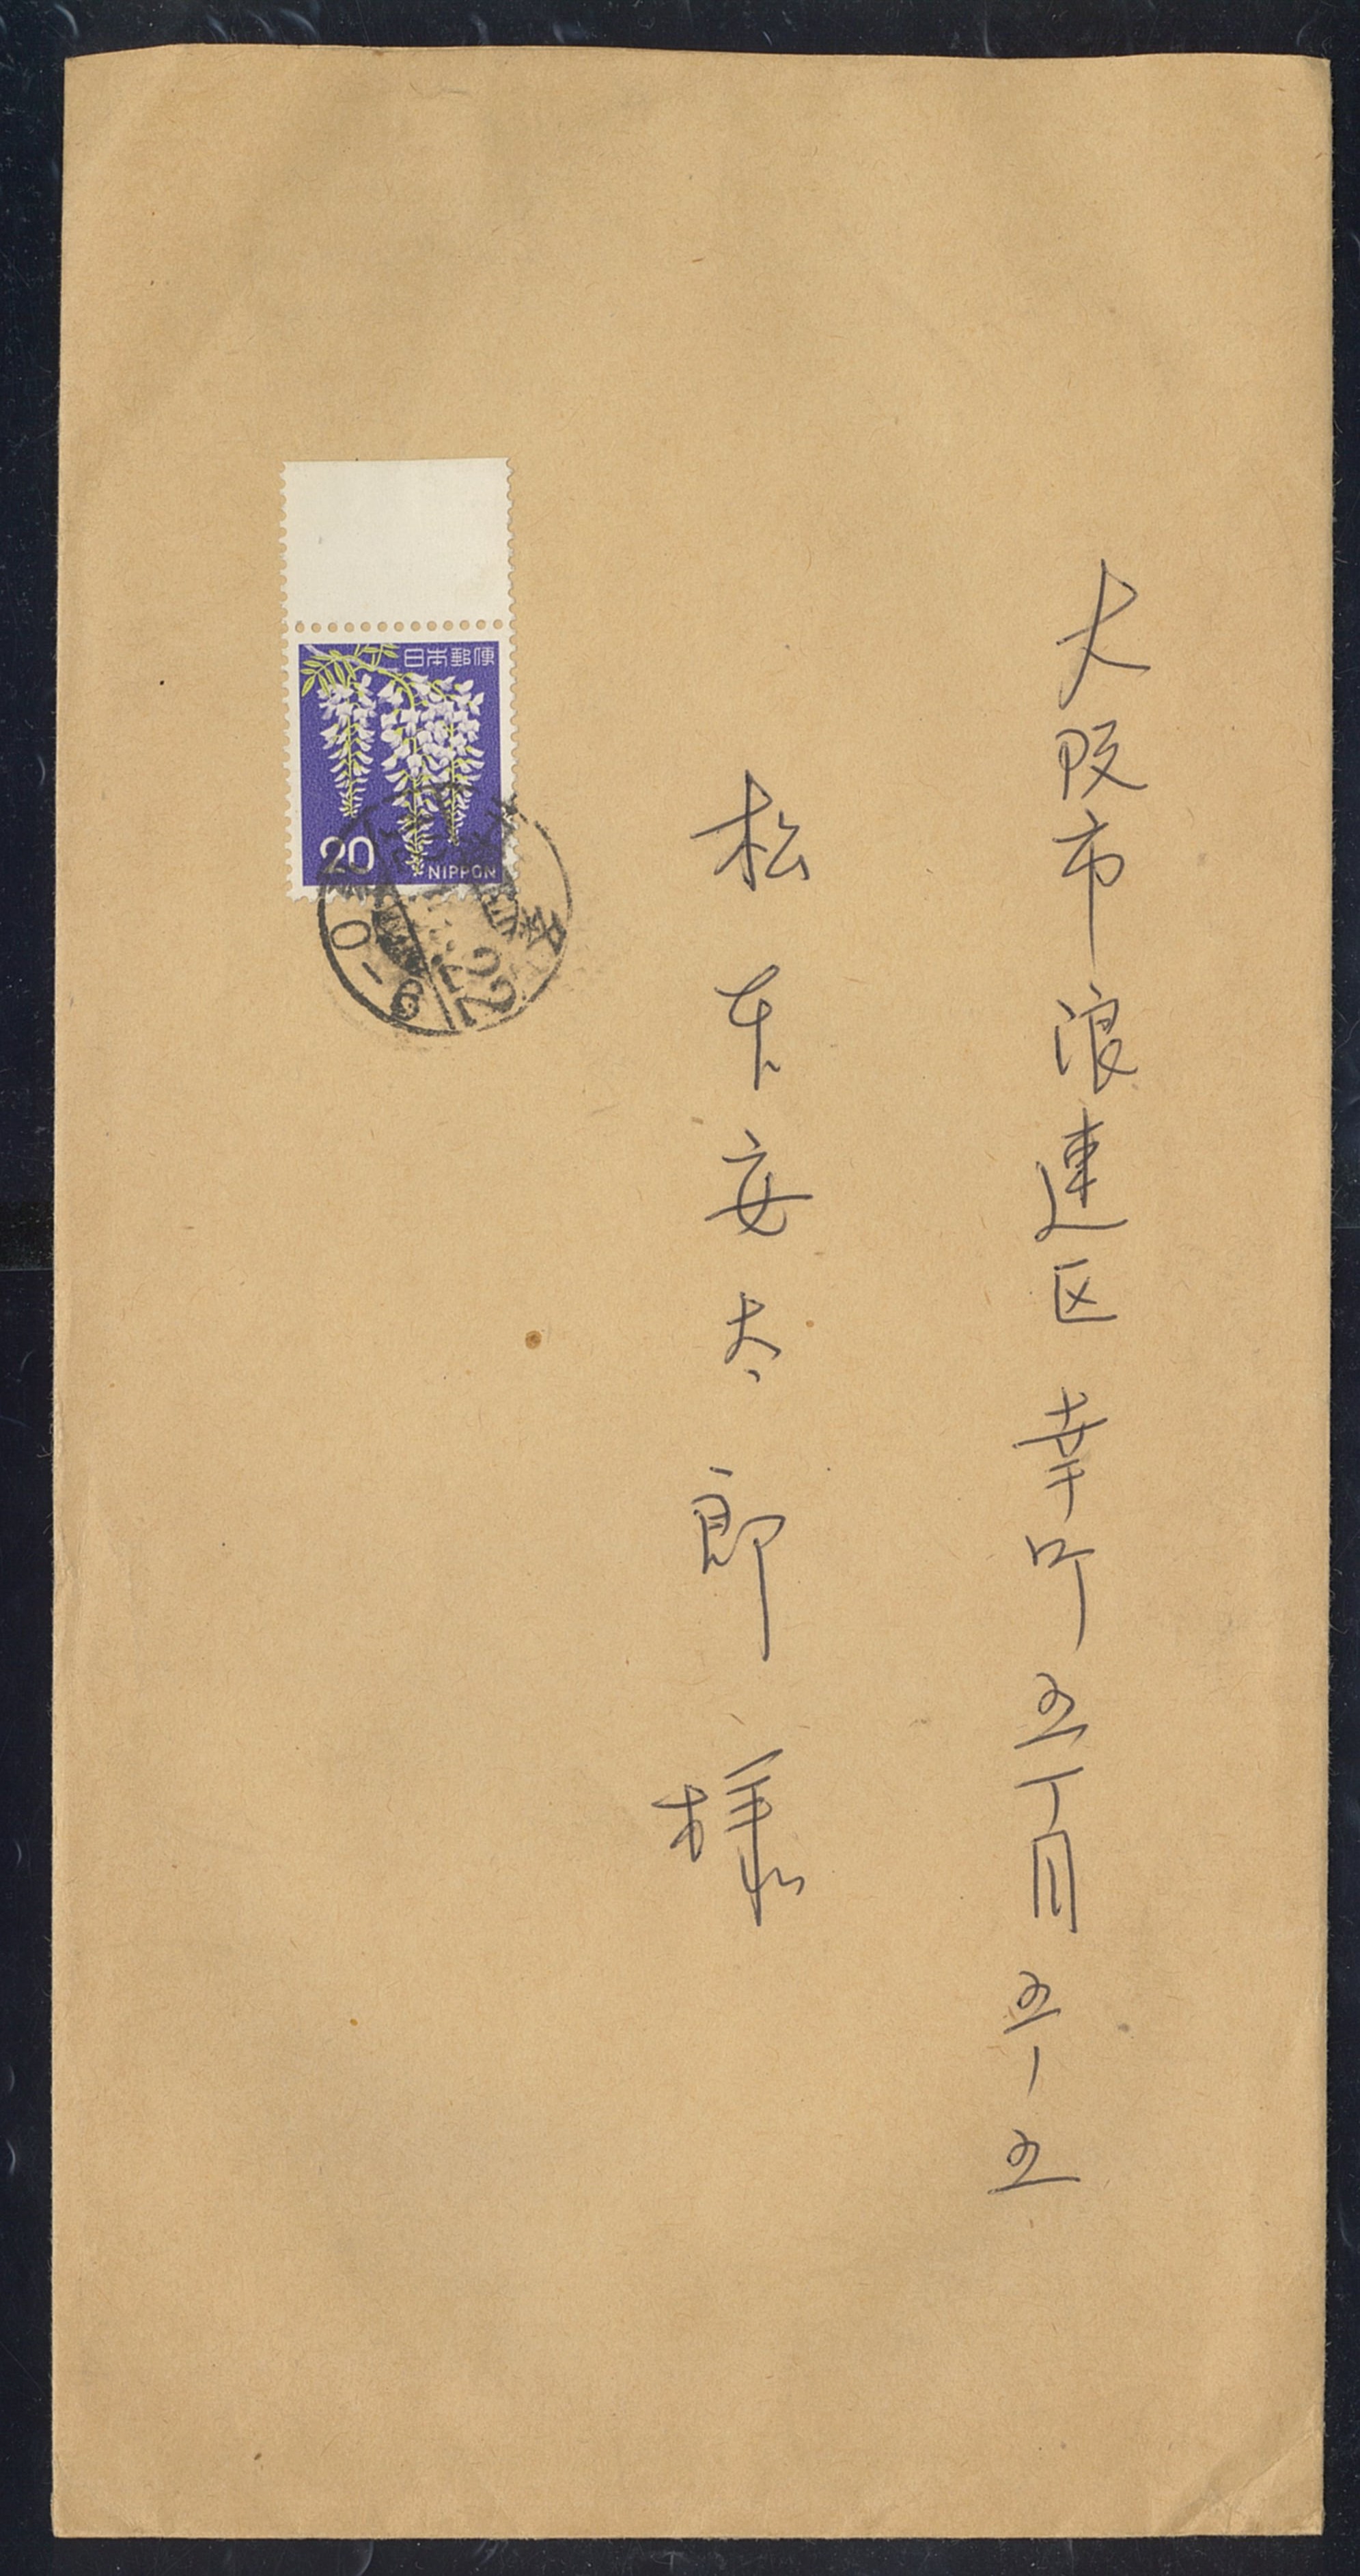 大阪市浪速区幸町五丁目五ー五
松本安太郎様
日本郵便
20
NIPPON
22
0-6